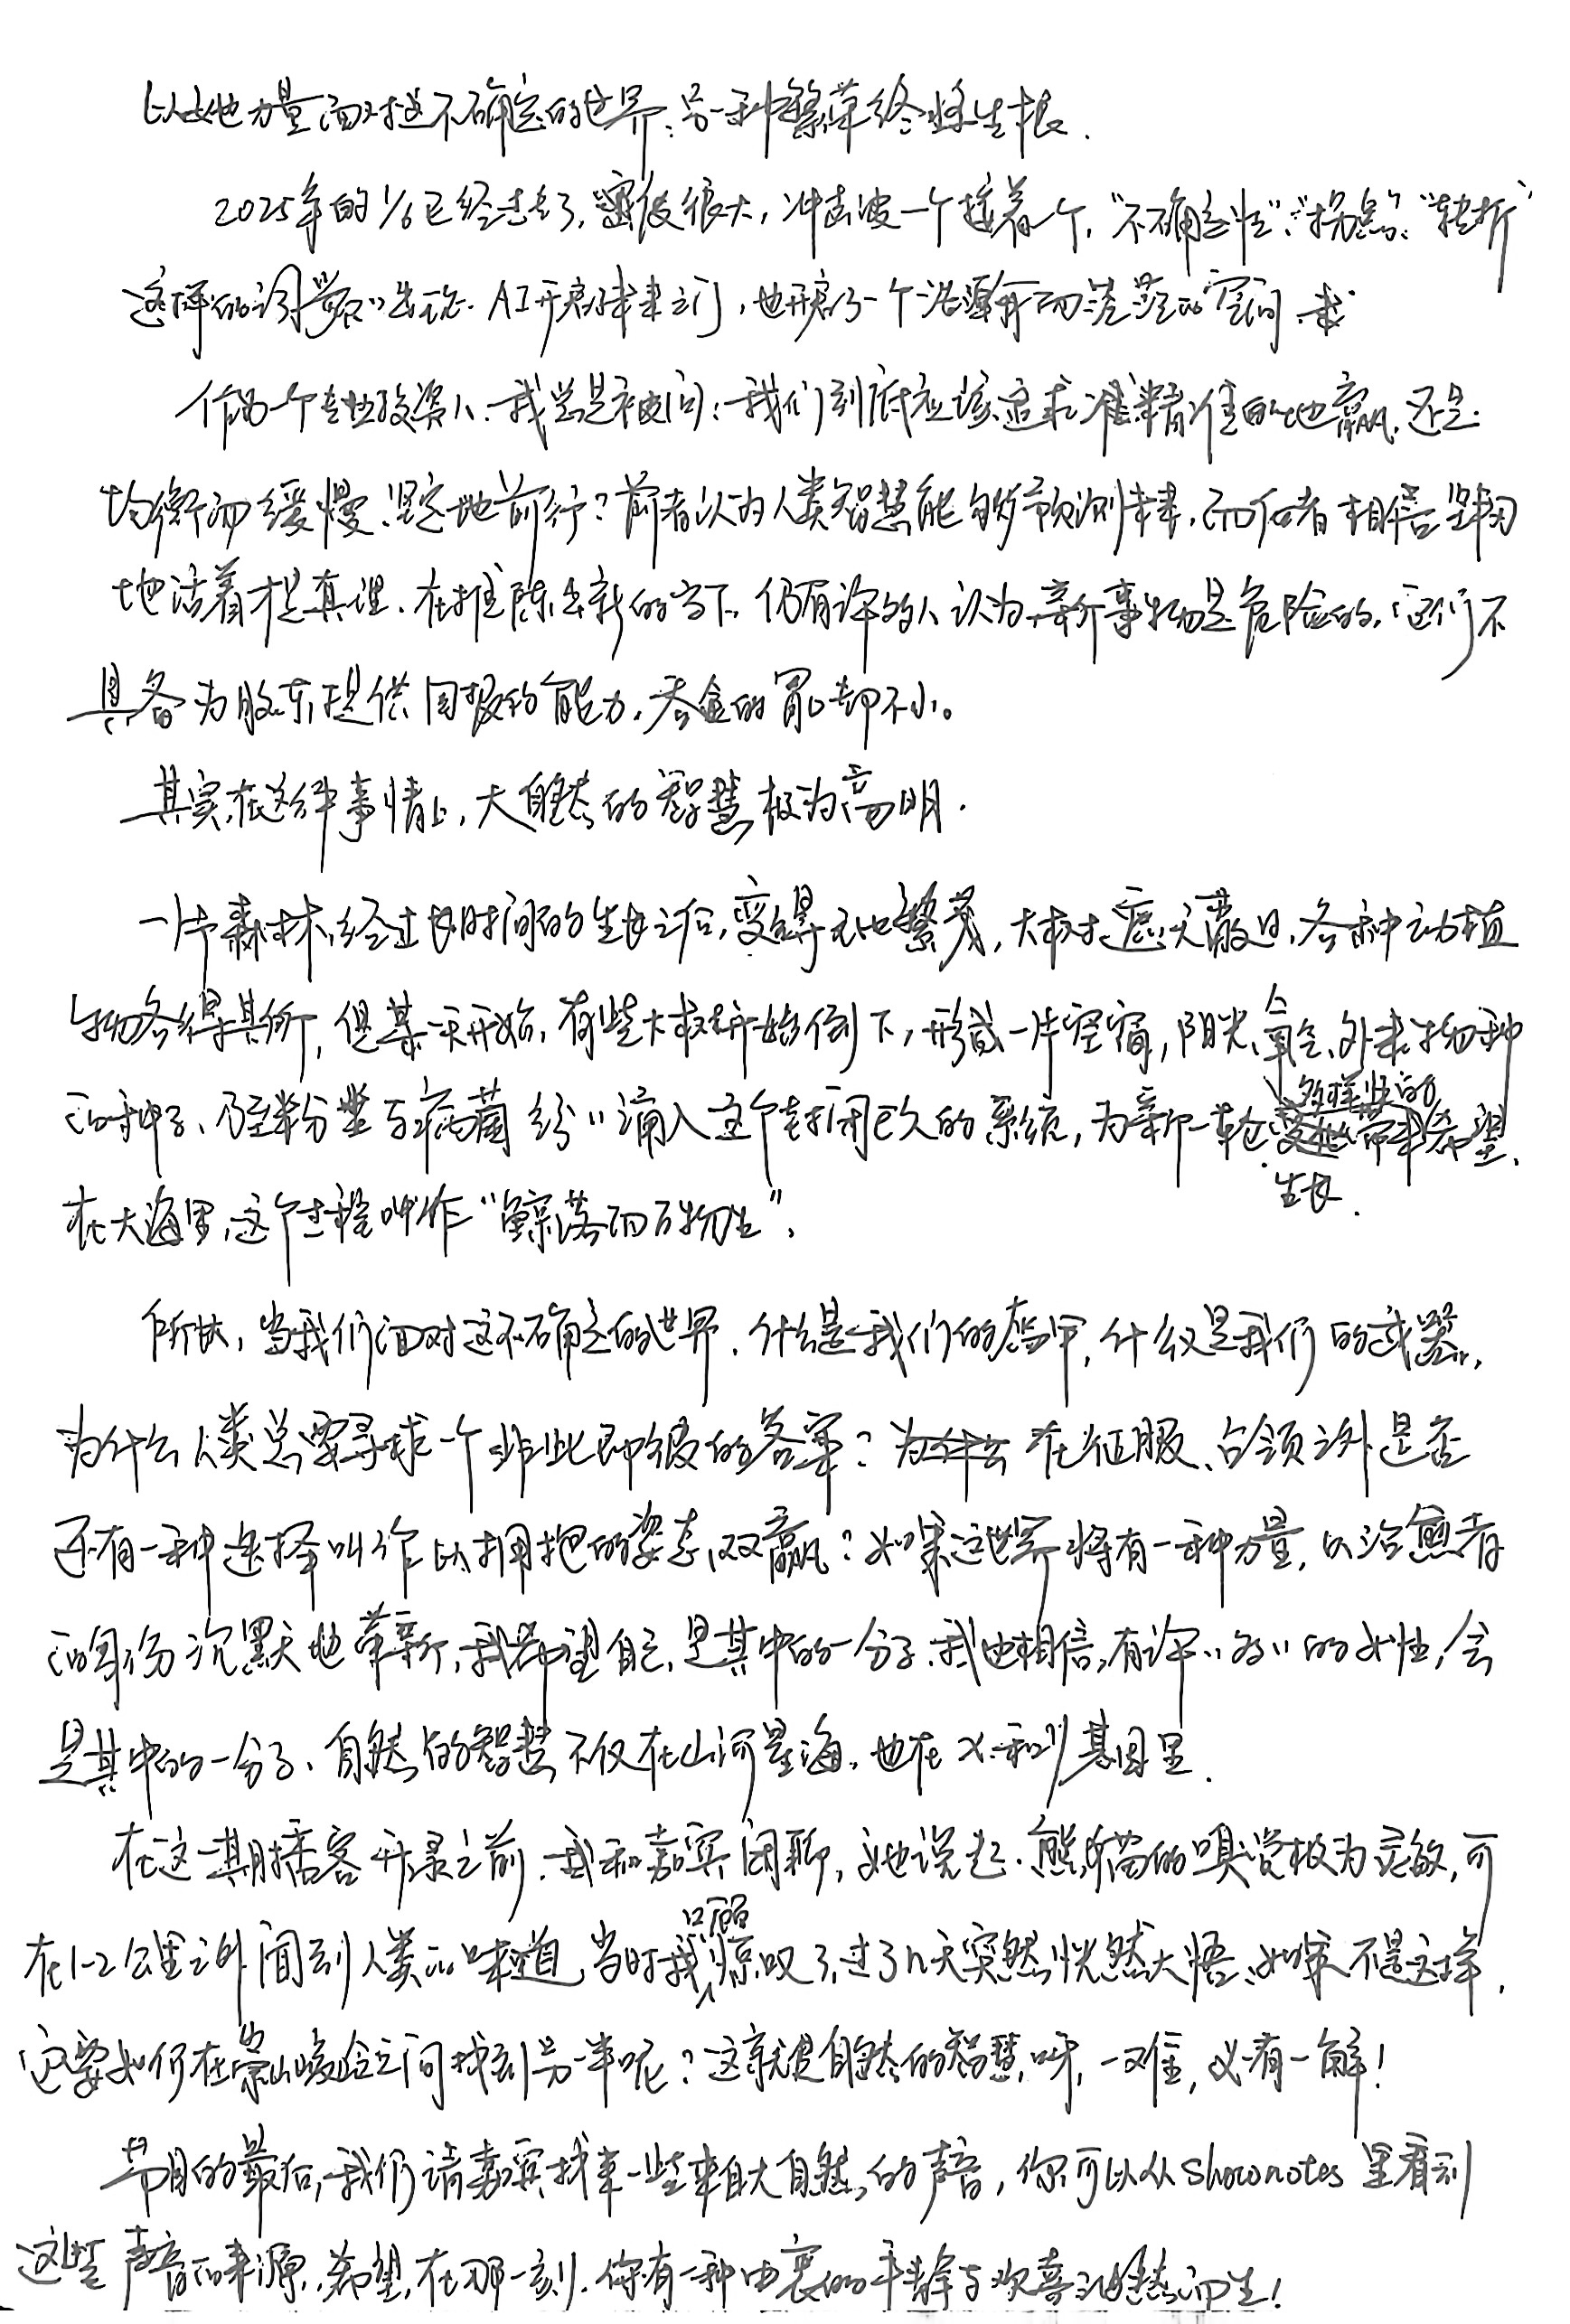 以她力量面对这不确定的世界:另一种繁草终将生根.
2025年的1/6已经走了,变役很大,冲击波一个接着一个,“不确定性”、“拐点”、“转折”
这样的词频频出现.AI开启了未来之门,也开启了一个浩瀚而茫茫的空间.
作为一个专业投资人,我总是被问:我们到底应该追求精准的地赢,还是
均衡而缓慢、坚定地前行?前者以为人类智慧能够预测未来,而后者相信坚韧
地活着才是真理.在推陈出新的当下,仍有许多人认为新事物是危险的,它们不
具备为股东提供回报的能力,吞金的胃口却不小。
其实在这件事情上,大自然的智慧极为高明.
一片森林,经过长时间的生长之后,变得无比繁茂,大树遮天蔽日,各种动植
物各得其所,但某一天开始,有些大树开始倒下,形成一片空窗,阳光、氧气、外来物种
的种子、乃至粉尘与病菌纷纷涌入这个封闭已久的系统,为新一轮多样性的生长带来希望.
在大海里,这个过程叫作“鲸落而万物生”.
所以,当我们面对这不确定的世界,什么是我们的盔甲,什么又是我们的武器,
为什么人类总要寻求一个非此即彼的答案?在征服、占领之外是否
还有一种选择叫作以拥抱的姿态双赢?如果这世界将有一种力量,以治愈者
的身份沉默地革新,我希望自己是其中的一分子.我也相信,有许许多多的女性,会
是其中的一分子、自然的智慧不仅在山河星海,也在X和Y基因里.
在这一期播客开录之前,我和嘉宾闲聊,她说起,熊猫的嗅觉极为灵敏,可
在1-2公里之外闻到人类的味道,当时我只顾惊叹了,过了n天突然恍然大悟,如果不是这样,
这要如何在崇山峻岭之间找到另一半呢?这就是自然的智慧呀,一难,必有一解!
节目的最后,我们请嘉宾找来一些来自大自然的声音,你可以从shownotes里看到
这些声音的来源,希望,在那一刻,你有一种由衷的平静与欢喜油然而生!